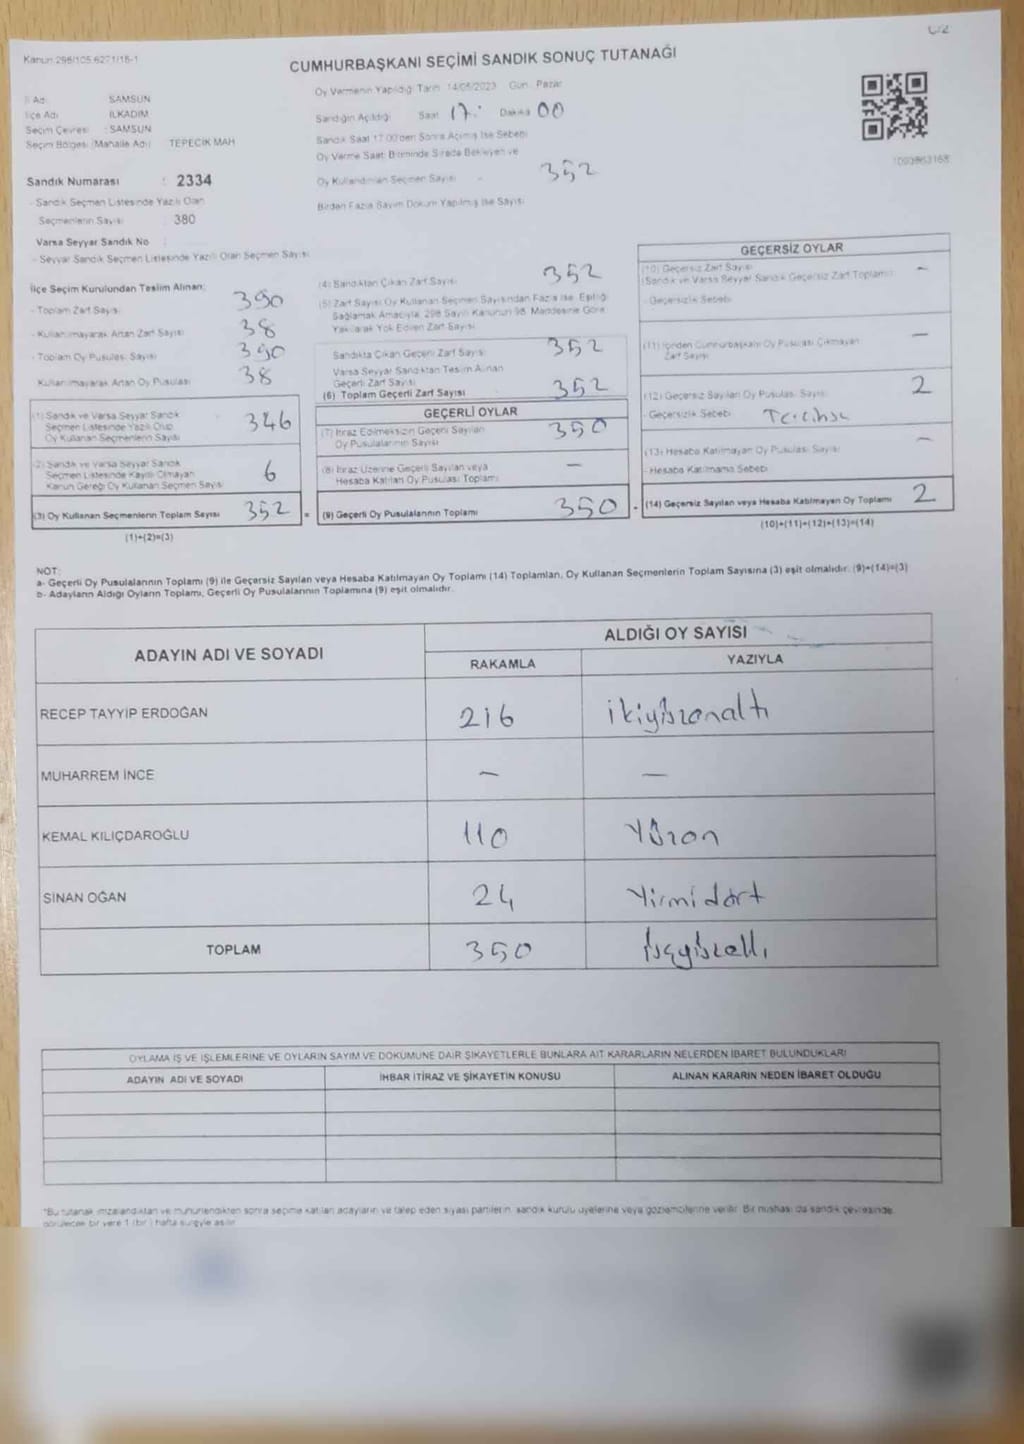 Kanun 298/105.6271/16-1
CUMHURBAŞKANI SEÇİMİ SANDIK SONUÇ TUTANAĞI
İl Adı SAMSUN
İlçe Adı İLKADIM
Seçim Çevresi : SAMSUN
Seçim Bölgesi (Mahalle Adı) TEPECİK MAH
Sandık Numarası : 2334
- Sandık Seçmen Listesinde Yazılı Olan
Seçmenlerin Sayısı : 380
Varsa Seyyar Sandık No
- Seyyar Sandık Seçmen Listesinde Yazılı Olan Seçmen Sayısı
Oy Vermenin Yapıldığı Tarih 14/05/2023 Gün : Pazar
Sandığın Açıldığı Saat 17: Dakika 00
Sandık Saat 17:00'den Sonra Açılmış İse Sebebi
Oy Verme Saati Bitiminde Sırada Bekleyen ve
Oy Kullandırılan Seçmen Sayısı 352
Birden Fazla Sayım Döküm Yapılmış İse Sayısı
İlçe Seçim Kurulundan Teslim Alınan:
- Toplam Zarf Sayısı 390
- Kullanılmayarak Artan Zarf Sayısı 38
- Toplam Oy Pusulası Sayısı 390
Kullanılmayarak Artan Oy Pusulası 38
(1) Sandık ve Varsa Seyyar Sandık
Seçmen Listesinde Yazılı Olup
Oy Kullanan Seçmenlerin Sayısı 346
(2) Sandık ve Varsa Seyyar Sandık
Seçmen Listesinde Kayıtlı Olmayan
Kanun Gereği Oy Kullanan Seçmen Sayısı 6
(3) Oy Kullanan Seçmenlerin Toplam Sayısı 352 =
(1)+(2)=(3)
(4) Sandıktan Çıkan Zarf Sayısı 352
(5) Zarf Sayısı Oy Kullanan Seçmen Sayısından Fazla İse, Eşitliği
Sağlamak Amacıyla, 298 Sayılı Kanunun 98. Maddesine Göre
Yakılarak Yok Edilen Zarf Sayısı
Sandıkta Çıkan Geçerli Zarf Sayısı 352
Varsa Seyyar Sandıktan Teslim Alınan
Geçerli Zarf Sayısı
(6) Toplam Geçerli Zarf Sayısı 352
GEÇERLİ OYLAR
(7) İtiraz Edilmeksizin Geçerli Sayılan
Oy Pusulalarının Sayısı 350
(8) İtiraz Üzerine Geçerli Sayılan veya
Hesaba Katılan Oy Pusulası Toplamı —
(9) Geçerli Oy Pusulalarının Toplamı 350 +
GEÇERSİZ OYLAR
(10) Geçersiz Zarf Sayısı
(Sandık ve Varsa Seyyar Sandık Geçersiz Zarf Toplamı) —
- Geçersizlik Sebebi
(11) İçinden Cumhurbaşkanı Oy Pusulası Çıkmayan
Zarf Sayısı —
(12) Geçersiz Sayılan Oy Pusulası Sayısı 2
- Geçersizlik Sebebi
(13) Hesaba Katılmayan Oy Pusulası Sayısı —
- Hesaba Katılmama Sebebi
(14) Geçersiz Sayılan veya Hesaba Katılmayan Oy Toplamı 2
(10)+(11)+(12)+(13)=(14)
NOT:
a- Geçerli Oy Pusulalarının Toplamı (9) ile Geçersiz Sayılan veya Hesaba Katılmayan Oy Toplamı (14) Toplamları, Oy Kullanan Seçmenlerin Toplam Sayısına (3) eşit olmalıdır. (9)+(14)=(3)
b- Adayların Aldığı Oyların Toplamı, Geçerli Oy Pusulalarının Toplamına (9) eşit olmalıdır.
ADAYIN ADI VE SOYADI ALDIĞI OY SAYISI
RAKAMLA YAZIYLA
RECEP TAYYİP ERDOĞAN 216 ikiyüzonaltı
MUHARREM İNCE — —
KEMAL KILIÇDAROĞLU 110 Yüzon
SİNAN OĞAN 24 Yirmidört
TOPLAM 350 üçyüzelli
OYLAMA İŞ VE İŞLEMLERİNE VE OYLARIN SAYIM VE DÖKÜMÜNE DAİR ŞİKAYETLERLE BUNLARA AİT KARARLARIN NELERDEN İBARET BULUNDUKLARI
ADAYIN ADI VE SOYADI İHBAR İTİRAZ VE ŞİKAYETİN KONUSU ALINAN KARARIN NEDEN İBARET OLDUĞU
*Bu tutanak imzalandıktan ve mühürlendikten sonra seçime katılan adayların ve talep eden siyasi partilerin, sandık kurulu üyelerine veya gözlemcilerine verilir. Bir nüshası da sandık çevresinde
görülecek bir yere 1 (bir) hafta süreyle asılır.